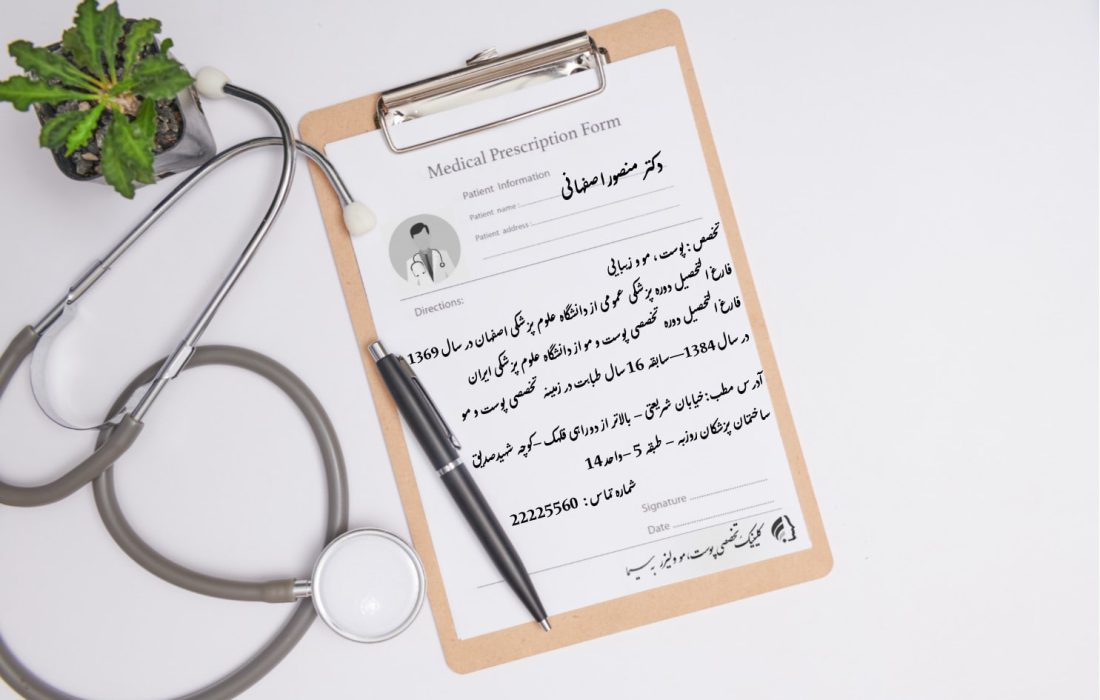 Medical Prescription Form
Patient Information
دکتر منصور اصفهانی
Patient name :
Patient address :
تخصص : پوست ، مو و زیبایی
Directions:
فارغ التحصیل دوره پزشکی عمومی از دانشگاه علوم پزشکی اصفهان در سال 1369
فارغ التحصیل دوره تخصصی پوست و مو از دانشگاه علوم پزشکی ایران
در سال 1384—سابقه 16 سال طبابت در زمینه تخصصی پوست و مو
آدرس مطب : خیابان شریعتی – بالاتر از دوراهی قلهک – کوچه شهید صدیق
ساختمان پزشکان روزبه – طبقه 5 – واحد 14
شماره تماس : 22225560
Signature
Date
کلینیک تخصصی پوست، مو و لیزر به سیما